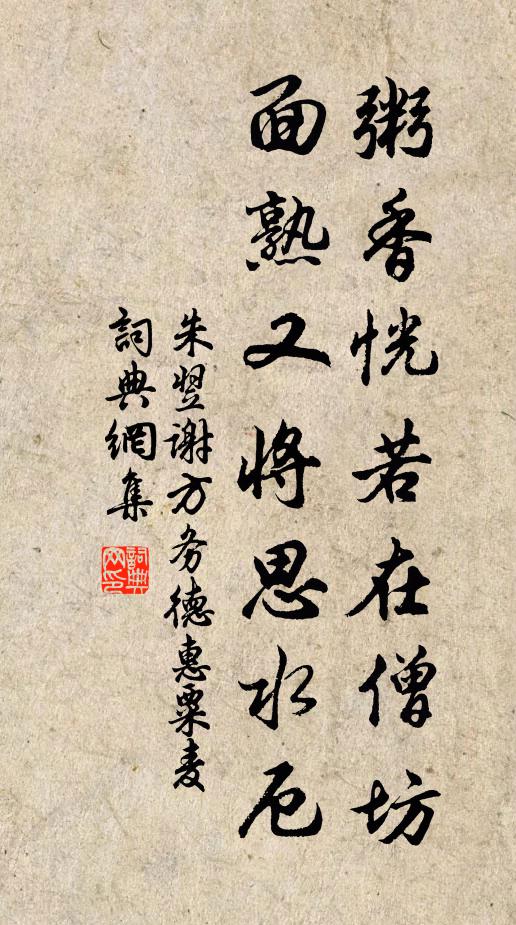 粥香恍若在僧坊
面熟又將思水厄
朱翌谢方务德惠粟麦
詞典網集
詞典网印